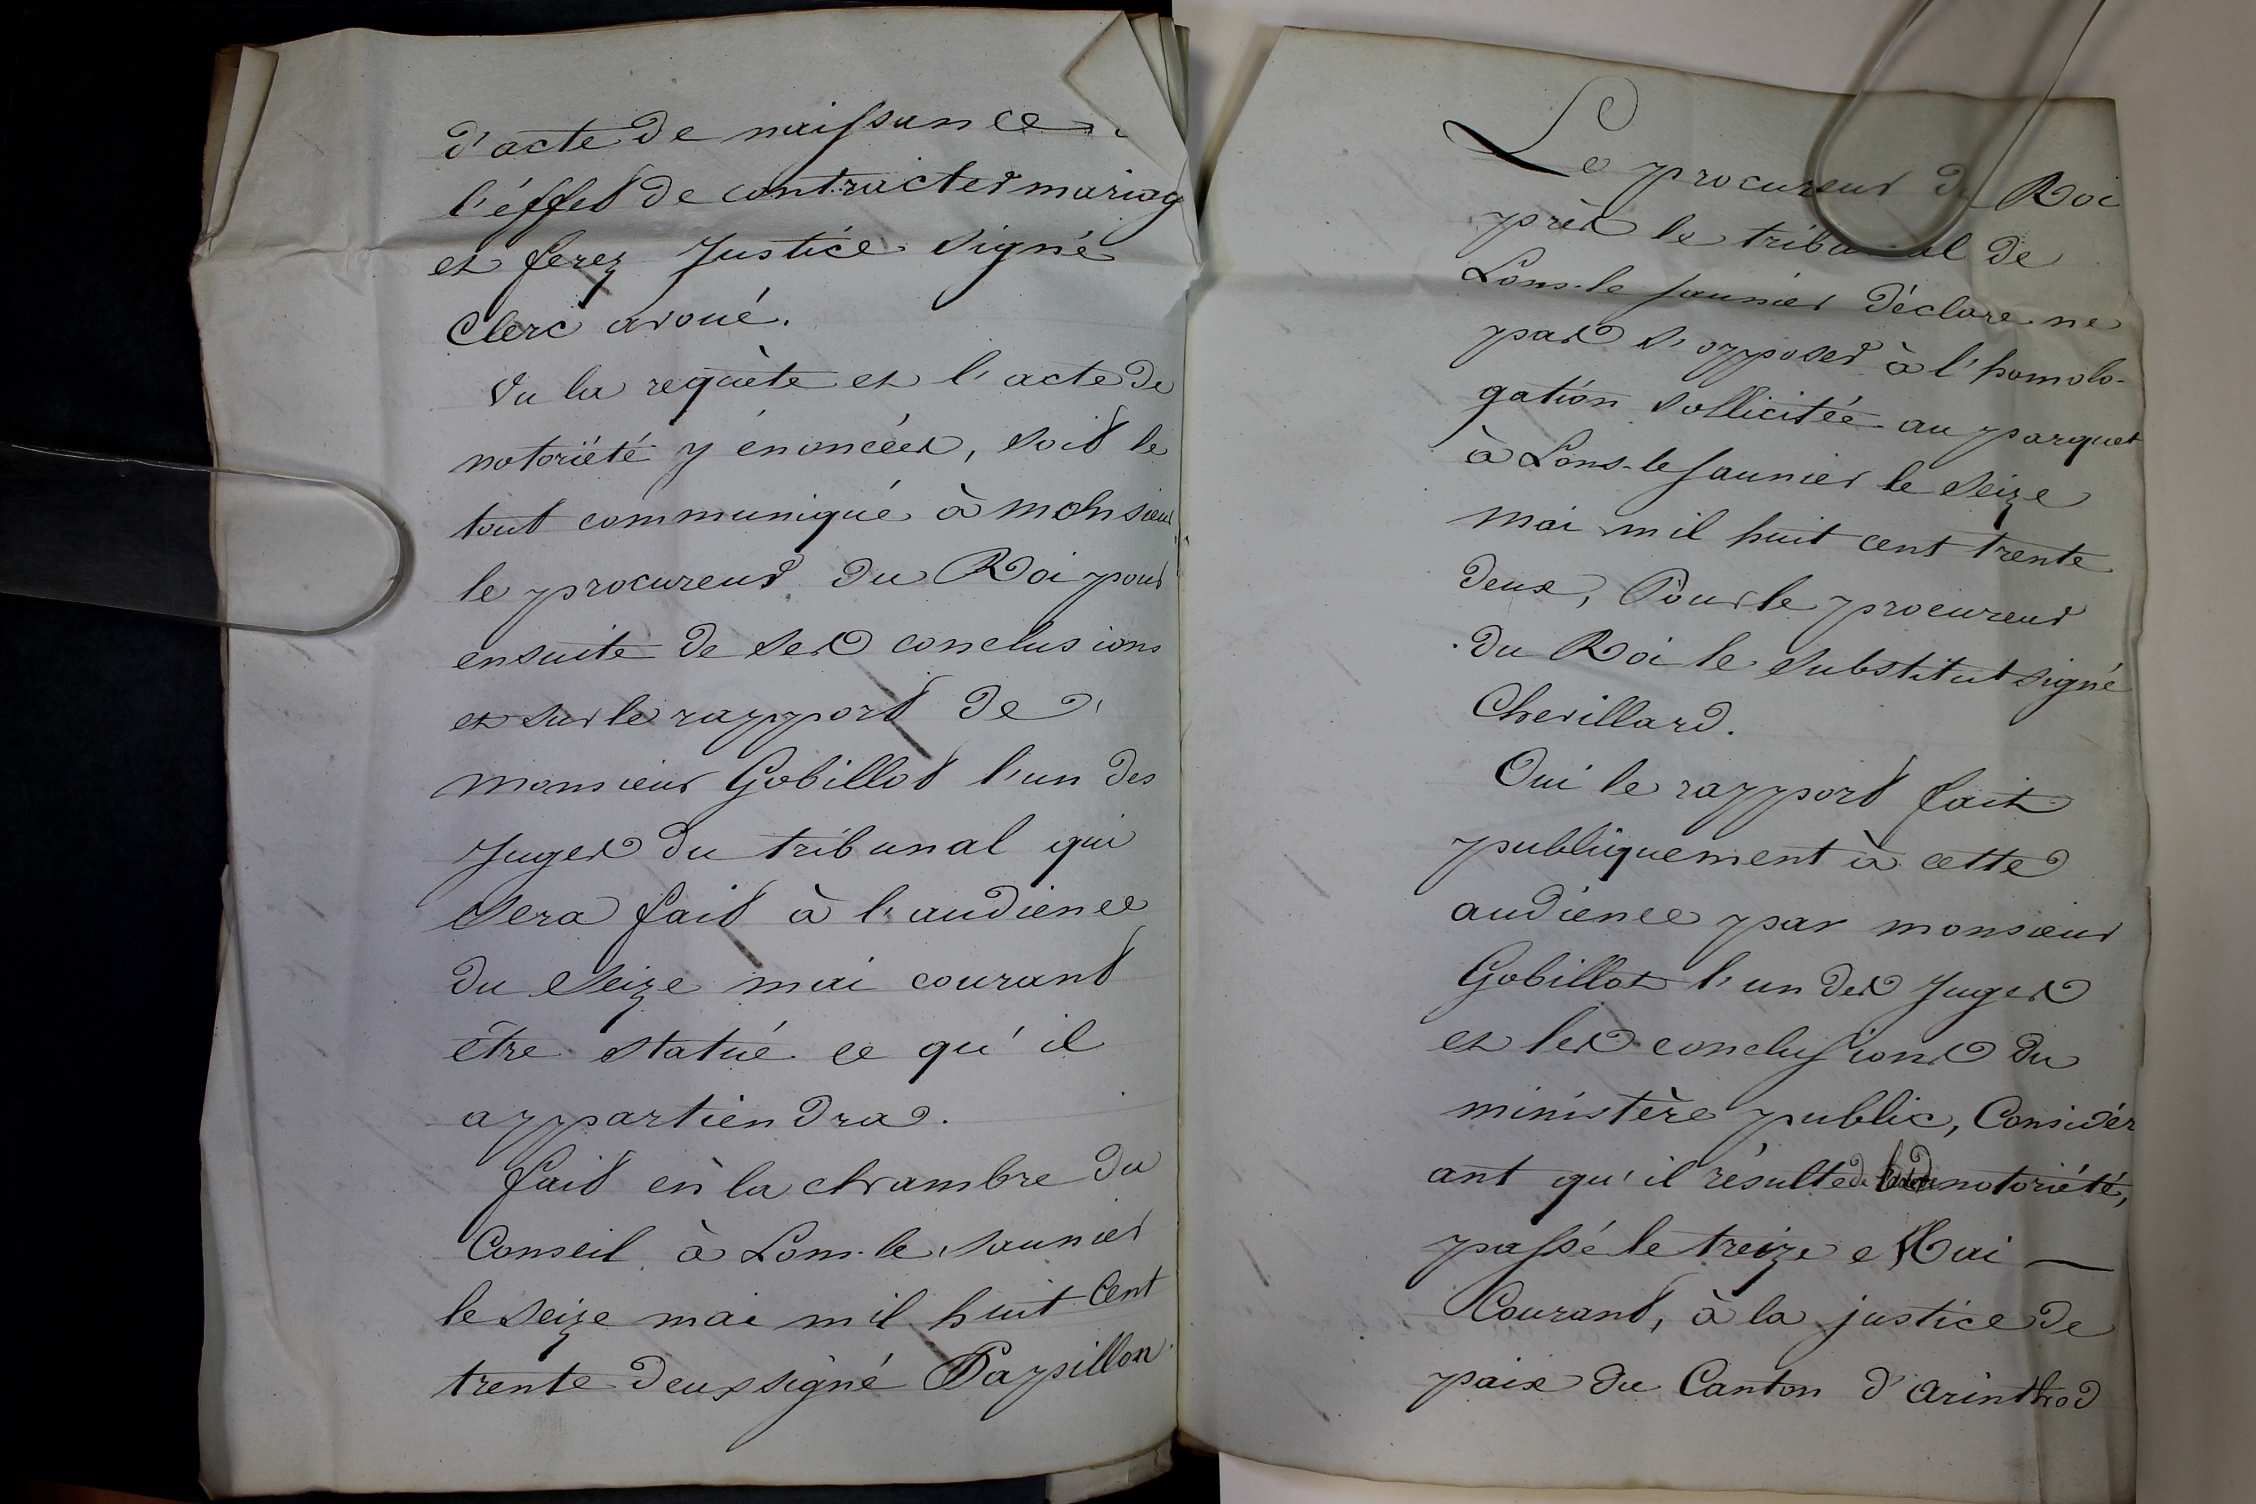 d'acte de naissance
l'éffet de contracter mariag
et ferez Justice signé
Clerc avoué.
Vu la requète et l'acte de
notoriété y énoncées, soit le
tout communiqué à monsieur
le procureur du Roi pour
ensuite de ses conclusions
et sur le rapport de
monsieur Gobillot l'un des
Juges du tribunal qui
sera fait à l'audience
du seize mai courant
être statué ce qu'il
appartiendra.
fait en la chambre du
Conseil à Lons-le saunier
le seize mai mil huit Cent
trente deux signé Papillon
Le procureur du Roi
près le tribunal de
Lons-le saunier déclare ne
pas s'opposer à l'homolo-
gation sollicitée au parquet
à Lons-le saunier le seize
mai mil huit cent trente
deux, Pour le procureur
du Roi le substitut signé
Chevillard.
Oui le rapport fait
publiquement à cette
audience par monsieur
Gobillot l'un des Juges
et les conclusions du
ministère public, Considér
ant qu'il résulte de notoriété,
passé le treize Mai
Courant, à la justice de
paix du Canton d'arinthod